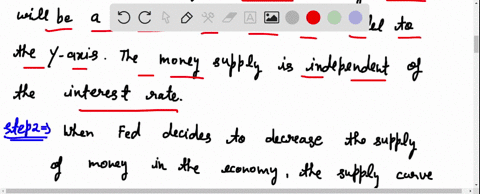 will be a to
the Y-axis. The money supply is independent of
the interest rate.
Step2⇒ When Fed decides to decrease the supply
of money in the economy, the supply curve